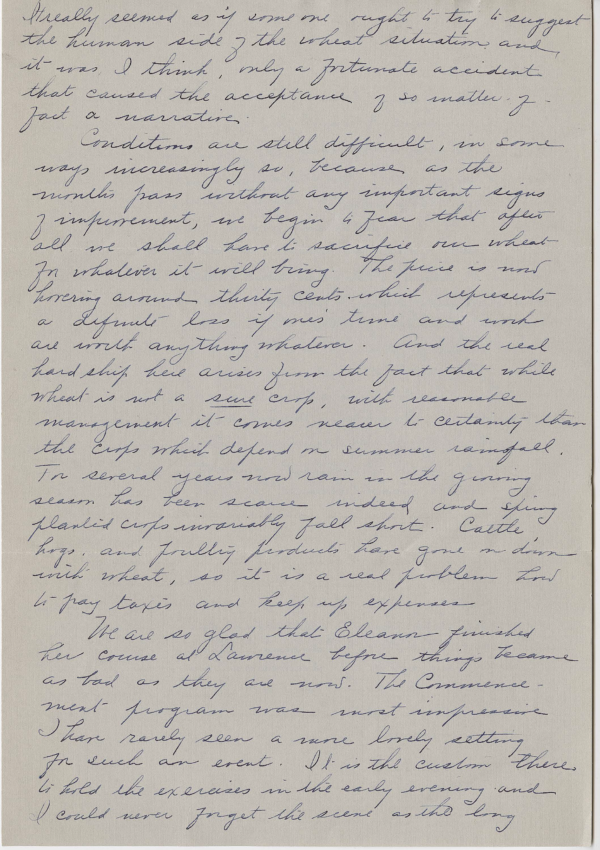 It really seemed as if some one ought to try to suggest
the human side of the wheat situation and,
it was, I think, only a fortunate accident
that caused the acceptance of so matter-of-
fact a narrative.
Conditions are still difficult, in some
ways increasingly so, because as the
months pass without any important signs
of improvement, we begin to fear that after
all we shall have to sacrifice our wheat
for whatever it will bring. The price is now
hovering around thirty cents which represents
a definite loss if one's time and work
are worth anything whatever. And the real
hardship here arises from the fact that while
wheat is not a sure crop, with reasonable
management it comes nearer to certainty than
the crops which depend on summer rainfall.
For several years now rain in the growing
season has been scarce indeed and spring
planted crops invariably fall short. Cattle,
hogs, and poultry products have gone on down
with wheat, so it is a real problem how
to pay taxes and keep up expenses
We are so glad that Eleanor finished
her course at Lawrence before things became
as bad as they are now. The Commence-
ment program was most impressive
I have rarely seen a more lovely setting
for such an event. It is the custom there
to hold the exercises in the early evening and
I could never forget the scene as the long